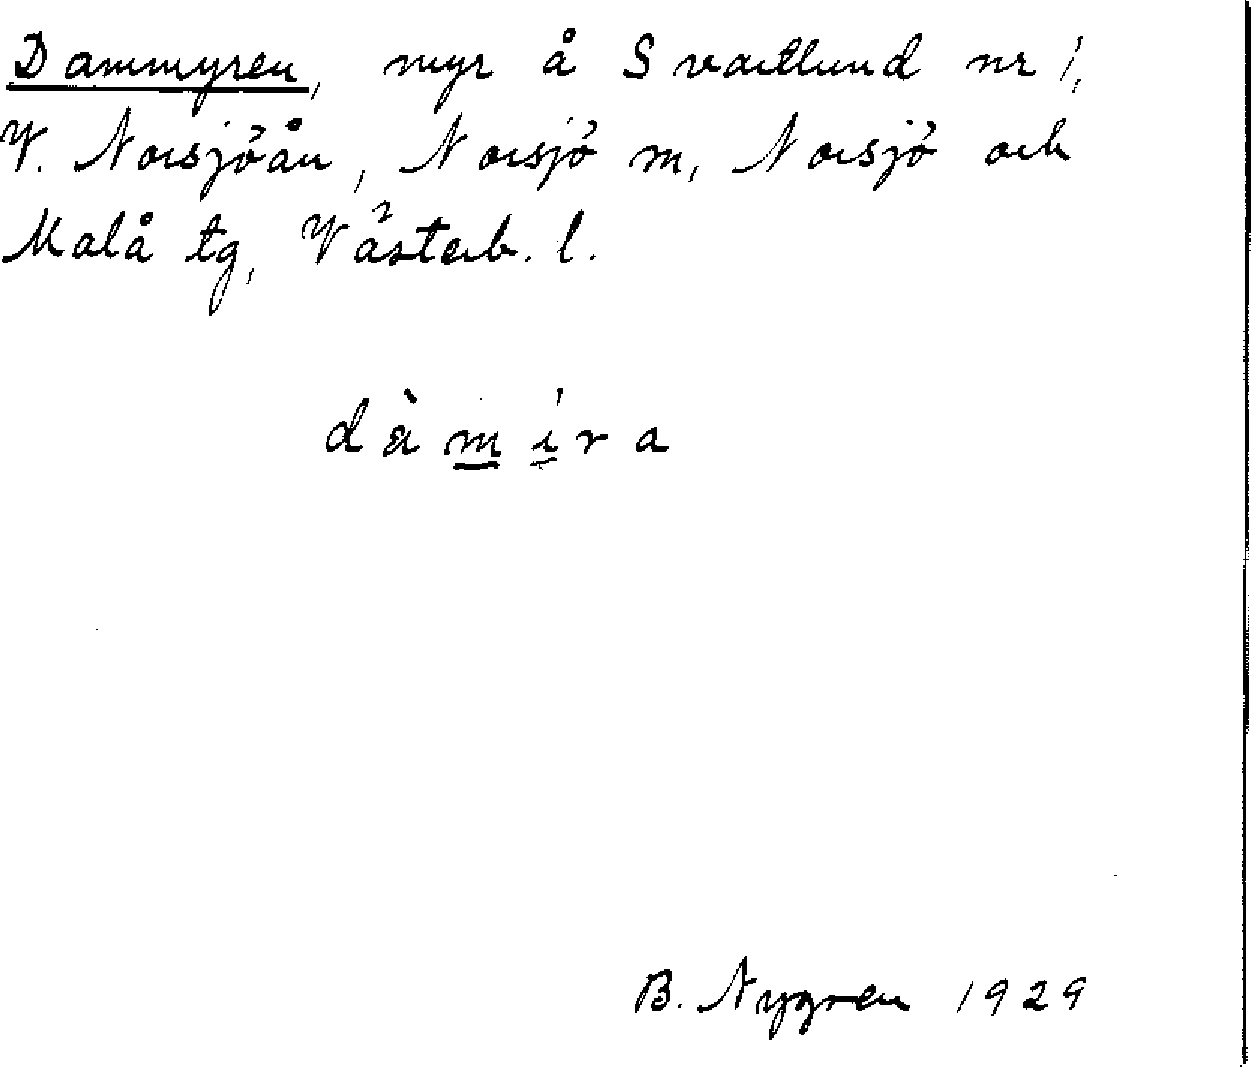 Dammyren, myr å Svartlund nr 1,
V. Norsjöån, Norsjö m, Norsjö och
Malå tg, Västerb. l.
dàmíra
B. Nygren 1929